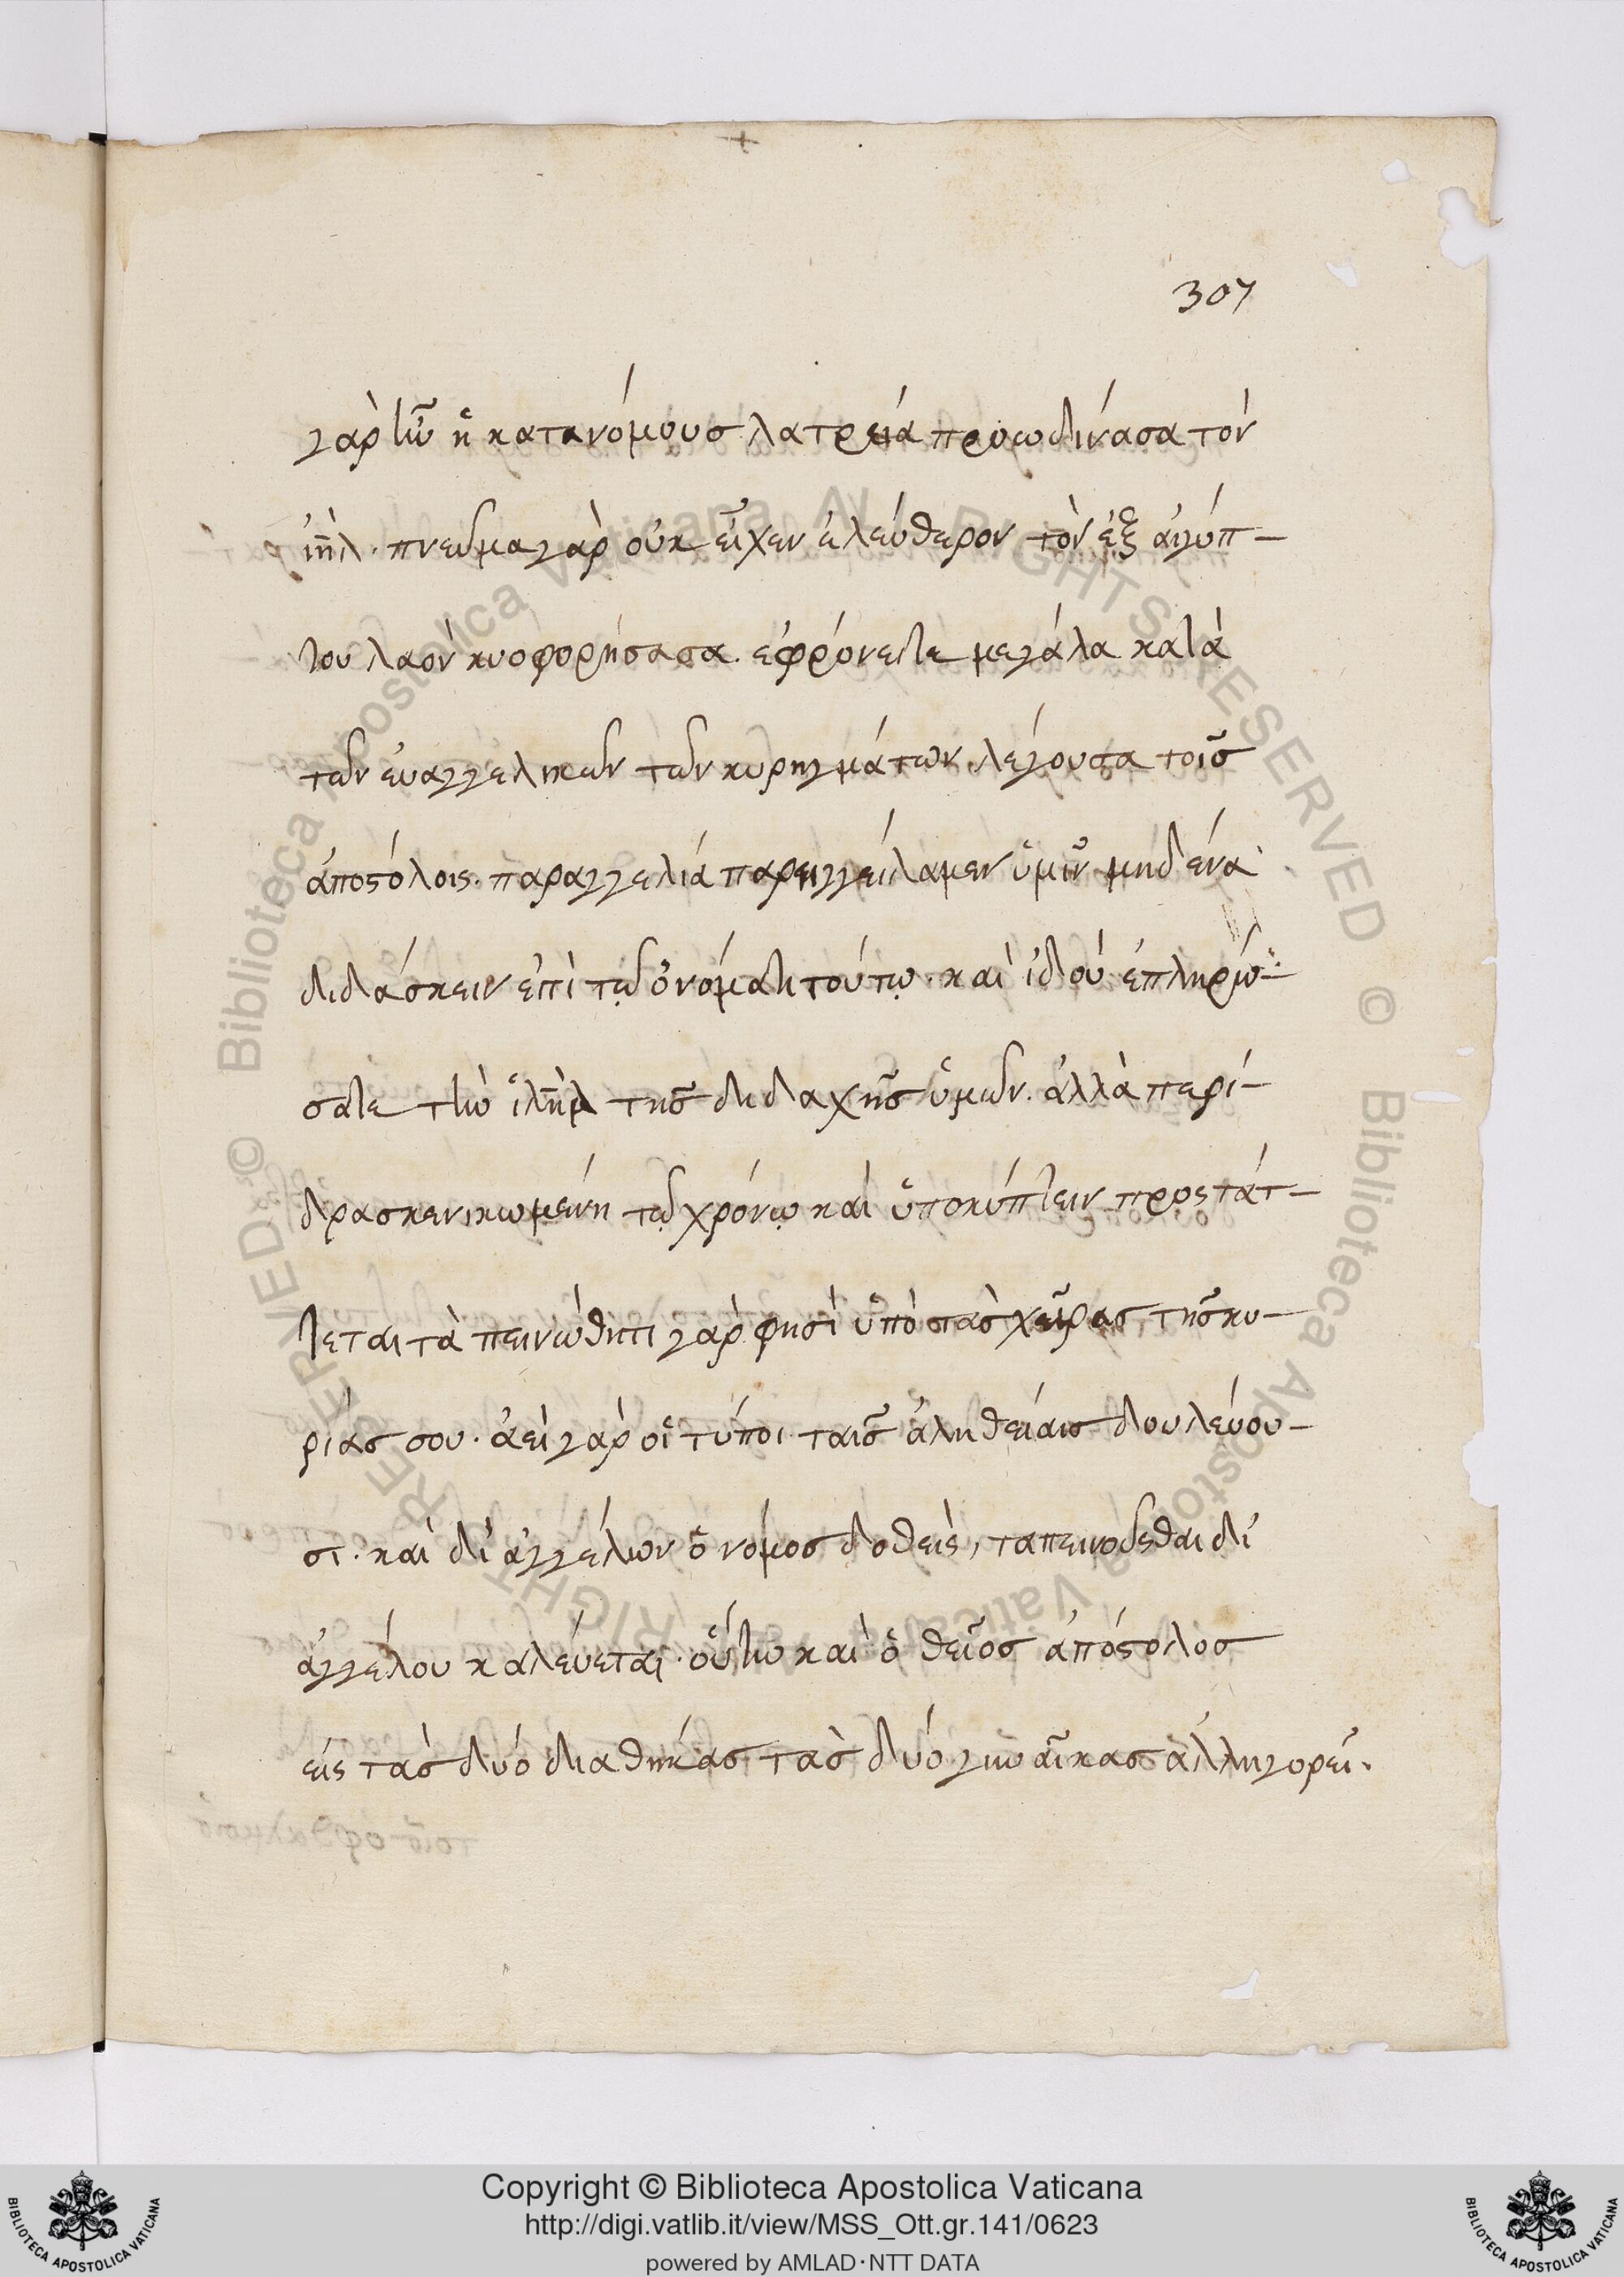 307
γὰρ ἦν ἡ κατανόμους λατρεία πρωωδινάσα τὸν
ἰη̅λ. πνεῦμα γὰρ οὐκ εἶχεν ἐλεύθερον τὸν ἐξ αἰγύπ-
του λαὸν κυοφορήσασα. εφρόνει τε μεγάλα κατὰ
τῶν ἐυαγγεληκῶν τῶν κυρηγμάτων λέγουσα τοῖς
ἀποστόλοις. παραγγελιά παρηγγείλαμεν ὑμῖν μηδένα
διδάσκειν ἐπὶ τῷ ὀνόματι τούτῳ. καὶ ἰδοὺ ἐπληρώ-
σατε τὴν ἱλη̅μ τῆς διδαχῆς ὑμῶν. ἀλλὰ περί-
δρασκενικωμένη τῷ χρόνῳ καὶ ὑποκύπτειν προστάτ-
τεται τὰ πεινώθητι γὰρ φησὶ ὑπὸ τὰς χεῖρας τῆς κυ-
ρίας σου. ἀεὶ γὰρ οἱ τύποι ταῖς ἀληθείαις δουλεύου-
σι. καὶ δι ἀγγέλων ὁ νόμος δοθεὶς, ταπεινοῦσθαι δι
ἀγγέλου καλεύεται. οὕτω καὶ ὁ θεῖος ἀπόστολος
εἰς τὰς δυό διαθήκας τὰς δύο γυναῖκας ἀλληγορεῖ.
Copyright © Biblioteca Apostolica Vaticana
http://digi.vatlib.it/view/MSS_Ott.gr.141/0623
powered by AMLAD·NTT DATA
BIBLIOTECA APOSTOLICA VATICANA
BIBLIOTECA APOSTOLICA VATICANA